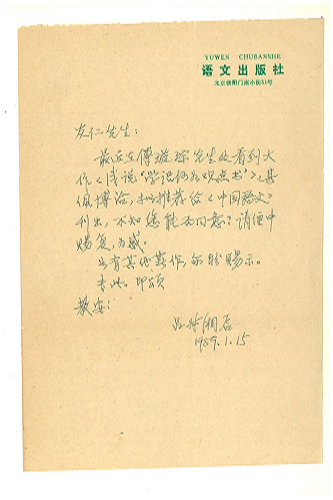 YUWEN CHUBANSHE
语文出版社
北京朝阳门南小街51号
友仁先生：
最近在傅璇琮先生处看到大
作《浅说“学识何如观点书”》，甚
佩博洽，拟推荐给《中国语文》
刊出，不知您能否同意？请便中
赐复，为感。
如有其他新作，亦盼赐示。
专此，即颂
教安！
吕叔湘启
1989.1.15